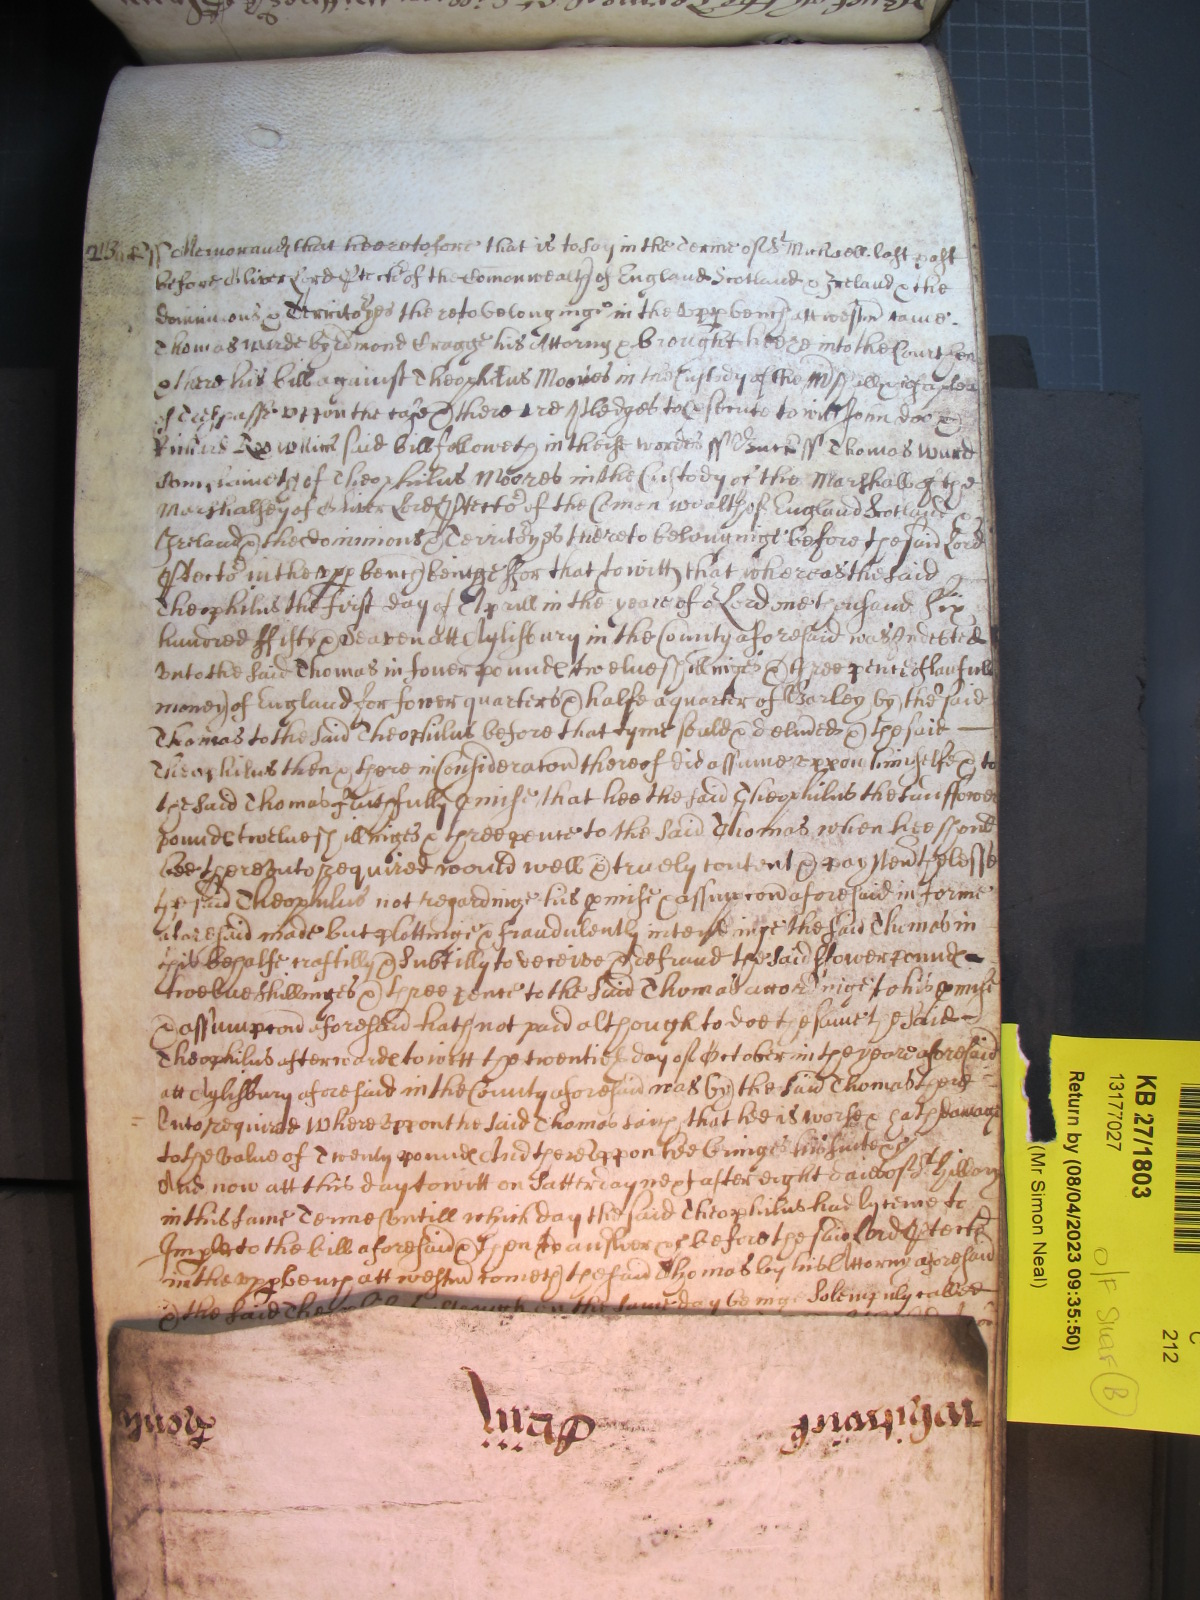 Buck ss Memorand that heeretofore that is to say in the Terme of St Michaell last past
before Oliver Lord Ptector of the Comonwealth of England Scotland & Ireland & the
dominions & Territoryes thereto belonginge in the upp bench att Westm came
Thomas Warde by Edmond Cragge his Attorny & brought heere into the Court then
& there his bill against Theophilus Moores in the Custody of the Mshall of a plea
of Trespasse uppon the case & there are pledges to psecute to witt John Doo &
Richard Roo which said bill followeth in theise wordes ss Buck ss Thomas Ward
Complaineth of Theophilus Moores in the Custody of the Marshall of the
Marshalsey of Oliver Lord Ptector of the Comon wealth of England Scotland &
Ireland & the dominions & Territoryes thereto belonginge before the said Lord
Ptector in the upp bench beinge For that to witt that whereas the said
Theophilus the first day of Aprill in the yeare of or Lord one thousand six
hundred ffifty & Seaven att Aylisbury in the County aforesaid was Indebted
unto the said Thomas in fower pounds twelve shillinges & three pence of lawfull
money of England for fower quarters & halfe a quarter of Barley by the said
Thomas to the said Theophilus before that tyme sould & delived & the said
Theophilus then & there in Consideracon thereof did assume uppon himselfe & to
the said Thomas faithfully pmise that hee the said Theophilus the said fower
pounds twelve shillinges & three pence to the said Thomas when hee should
bee thereunto required would well & truely content & pay Nevthelesse
the said Theophilus not regardinge his pmise & assumpcon aforesaid in forme
aforesaid made but plottinge & fraudulently intendinge the said Thomas in
this behalfe craftilly & subtilly to deceive & defraud the said ffower pounds
twelve shillinges & three pence to the said Thomas accordinge to his pmise
& assumpcon aforesaid hath not paid although to doe the same the said
Theophilus afterwards to witt the twentieth day of October in the yeare aforesaid
att Aylisbury aforesaid in the County aforesaid was by the said Thomas there
unto required Whereuppon the said Thomas saith that hee is worse & hath damage
to the value of Twenty pounds And thereuppon hee bringes his suite &c
And now att this day to witt on Satterday next after eight daies of St Hillary
in this same Terme untill which day the said Theophilus had lycence to
Imple to the bill aforesaid & then to answer &c before the said Lord Ptector
in the upp bench att Westm cometh the said Thomas by his Attorny aforesaid
& the said on the same day beinge solempnly called
Whitwong
Hill
KB 27/1803
13177027
Return by (08/04/2023 09:35:50)
(Mr Simon Neal)
C
212
O/F Shaf B